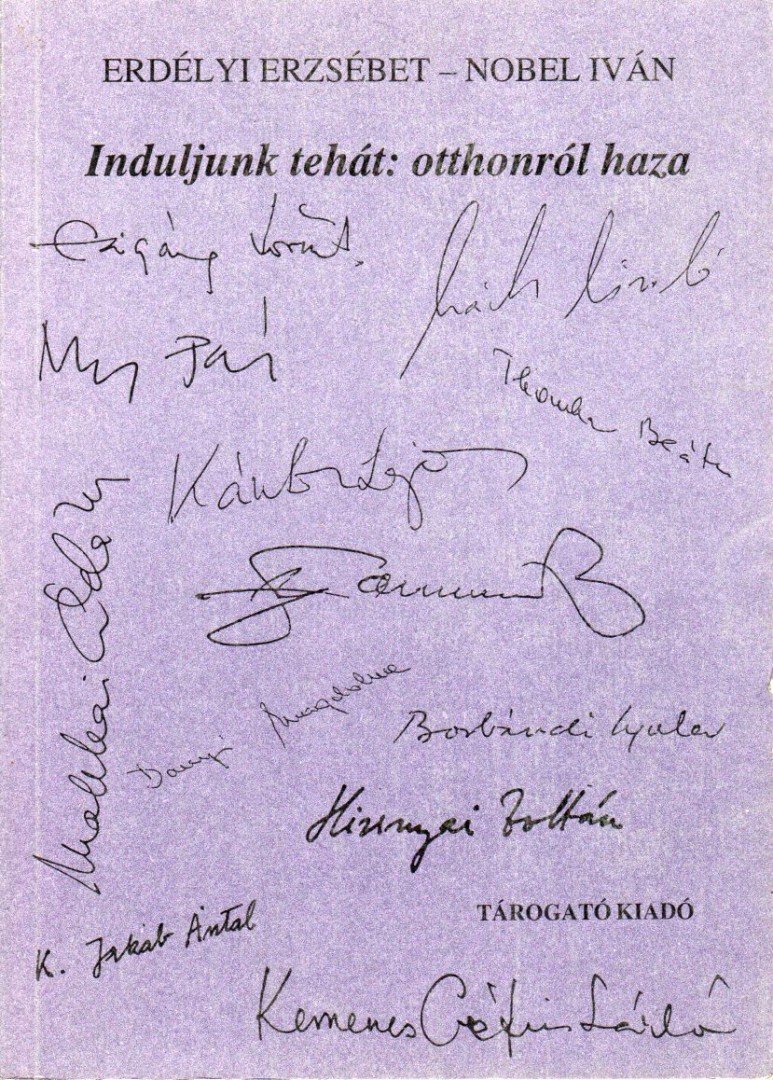 ERDÉLYI ERZSÉBET – NOBEL IVÁN
Induljunk tehát: otthonról haza
Czigány Loránt.
Thomka Beáta
Kántor Lajos
Makkai Ádám
Danyi Magdolna
Borbándi Gyula
Hizsnyai Zoltán
TÁROGATÓ KIADÓ
K. Jakab Antal
Kemenes Géfin László